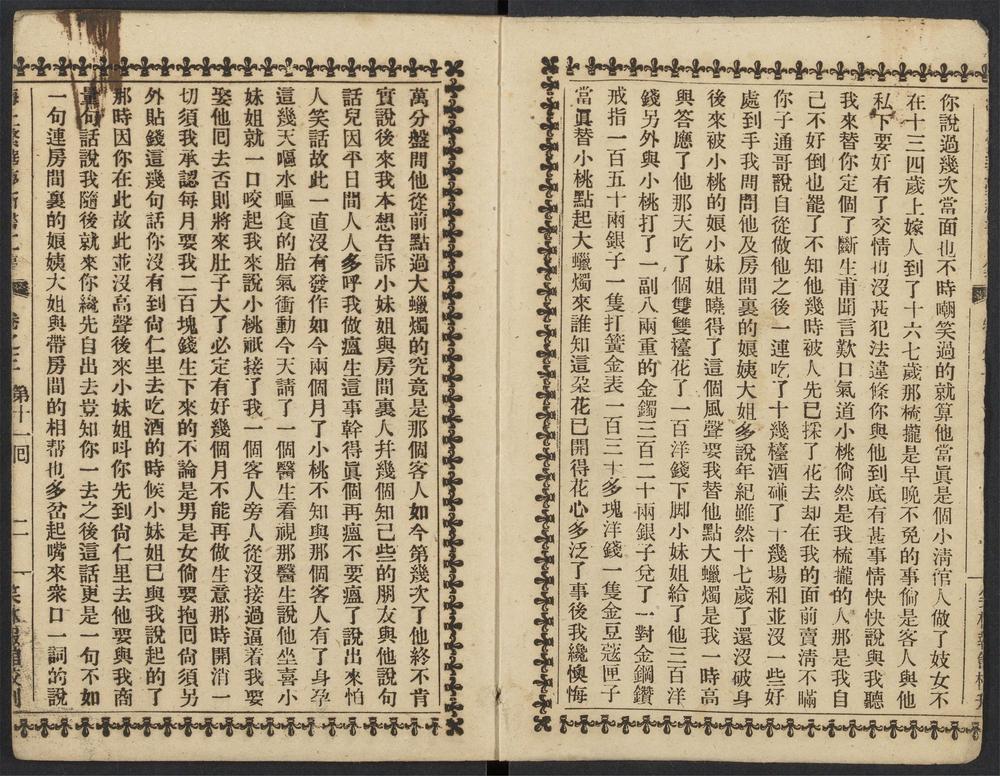 你說過幾次當面也不時嘲笑過的就算他當眞是個小淸倌人做了妓女不
在十三四歲上嫁人到了十六七歲那梳攏是早晚不免的事倘是客人與他
私下要好有了交情也沒甚犯法違條你與他到底有甚事情快快說與我聽
我來替你定個了斷生甫聞言歎口氣道小桃倘然是我梳攏的人那是我自
己不好倒也罷了不知他幾時被人先已採了花去却在我的面前賣淸不瞞
你子通哥說自從做他之後一連吃了十幾檯酒碰了十幾塲和並沒一些好
處到手我問問他及房間裏的娘姨大姐多說年紀雖然十七歲了還沒破身
後來被小桃的娘小妹姐曉得了這個風聲要我替他點大蠟燭是我一時高
興答應了他那天吃了個雙雙檯花了一百洋錢下脚小妹姐給了他三百洋
錢另外與小桃打了一副八兩重的金鐲三百二十兩銀子兌了一對金鋼鑽
戒指一百五十兩銀子一隻打簧金表一百三十多塊洋錢一隻金荳蔻匣子
當眞替小桃點起大蠟燭來誰知這朶花已開得花心多泛了事後我纔懊悔
萬分盤問他從前點過大蠟燭的究竟是那個客人如今第幾次了他終不肯
實說後來我本想告訴小妹姐與房間裏人幷幾個知己些的朋友與他說句
話兒因平日間人人多呼我做瘟生這事幹得眞個再瘟不要瘟了說出來怕
人笑話故此一直沒有發作如今兩個月了小桃不知與那個客人有了身孕
這幾天嘔水嘔食的胎氣衝動今天請了一個醫生看視那醫生說他坐喜小
妹姐就一口咬起我來說小桃祇接了我一個客人旁人從沒接過逼着我要
娶他囘去否則將來肚子大了必定有好幾個月不能再做生意那時開消一
切須我承認每月要我二百塊錢生下來的不論是男是女倘要抱囘尙須另
外貼錢這幾句話你沒有到尙仁里去吃酒的時候小妹姐已與我說起的了
那時因你在此故此並沒高聲後來小妹姐呌你先到尙仁里去他要與我商
量句話說我隨後就來你纔先自出去豈知你一去之後這話更是一句不如
一句連房間裏的娘姨大姐與帶房間的相帮也多岔起嘴來衆口一詞的說
卷之三 第十一囘 二